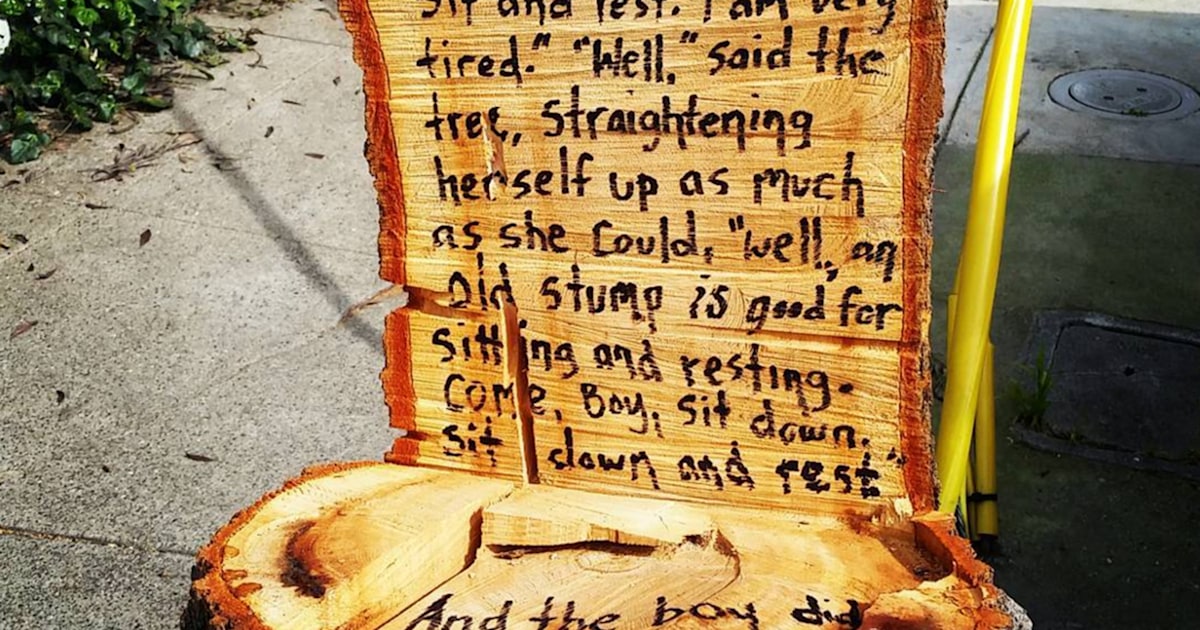 sit and rest. I am very
tired." "Well," said the
tree, straightening
herself up as much
as she could, "well, an
old stump is good for
sitting and resting.
Come, Boy, sit down.
sit down and rest"
And the boy did